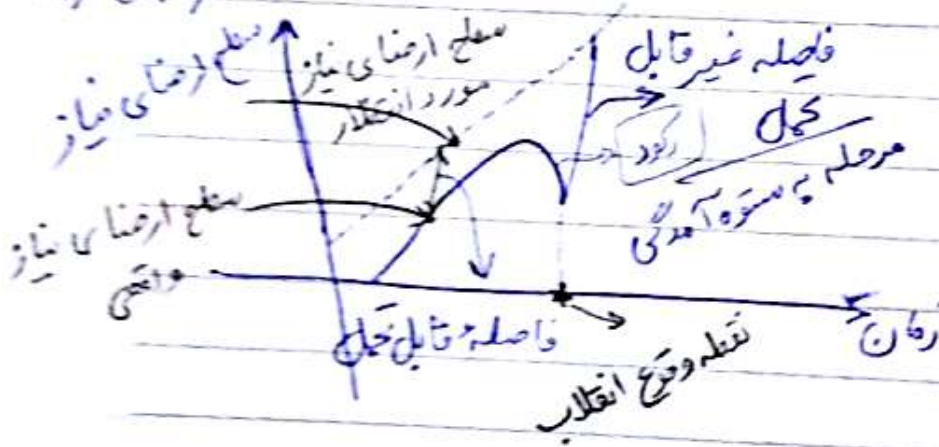 سطح ارضای نیاز
سطح ارضای نیاز
مورد انتظار
فاصله غیر قابل
تحمل
رکود
مرحله به ستوه آمدگی
سطح ارضای نیاز
واقعی
فاصله قابل تحمل
زمان
نقطه وقوع انقلاب